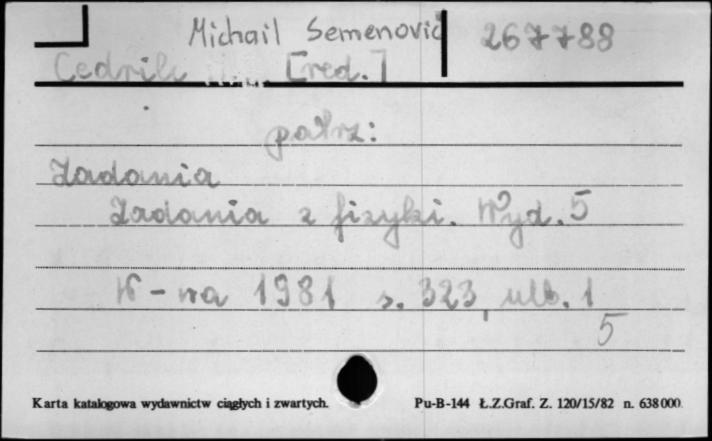 Michail Semenovič 267788
Cedrik [red.]
patrz:
Zadania
Zadania z fizyki. Wyd. 5
W-wa 1981 s. 323, ulb. 1
5
Karta katalogowa wydawnictw ciągłych i zwartych. Pu-B-144 Ł.Z.Graf. Z. 120/15/82 n. 638000